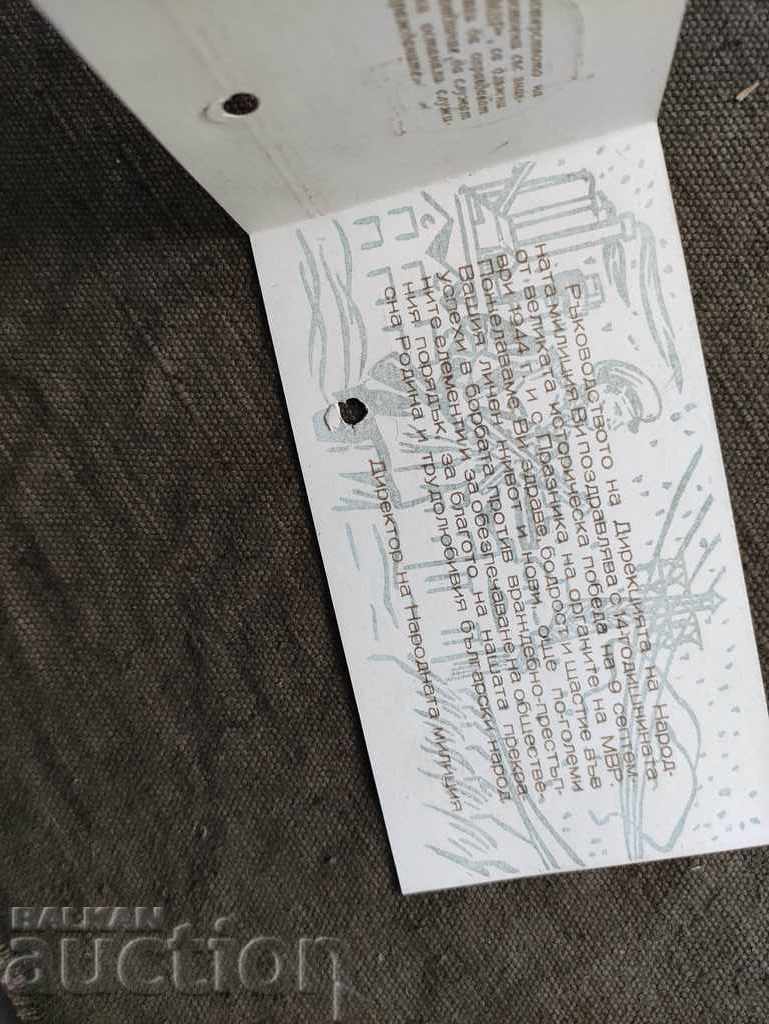 Ръководството на Дирекцията на Народ-
ната милиция Ви поздравлява с 14 годишнината
от великата историческа победа на 9 септем-
ври 1944 г. и с Празника на органите на МВР.
Пожелаваме Ви здраве, бодрост и щастие във
Вашия личен живот и нови, още по-големи
успехи в борбата против враждебно-престъп-
ните елементи и за обезпечаване на обществе-
ния порядък, за благото на нашата прекра-
сна Родина и трудолюбивия български народ.
Директор на Народната милиция
BALKAN
auction